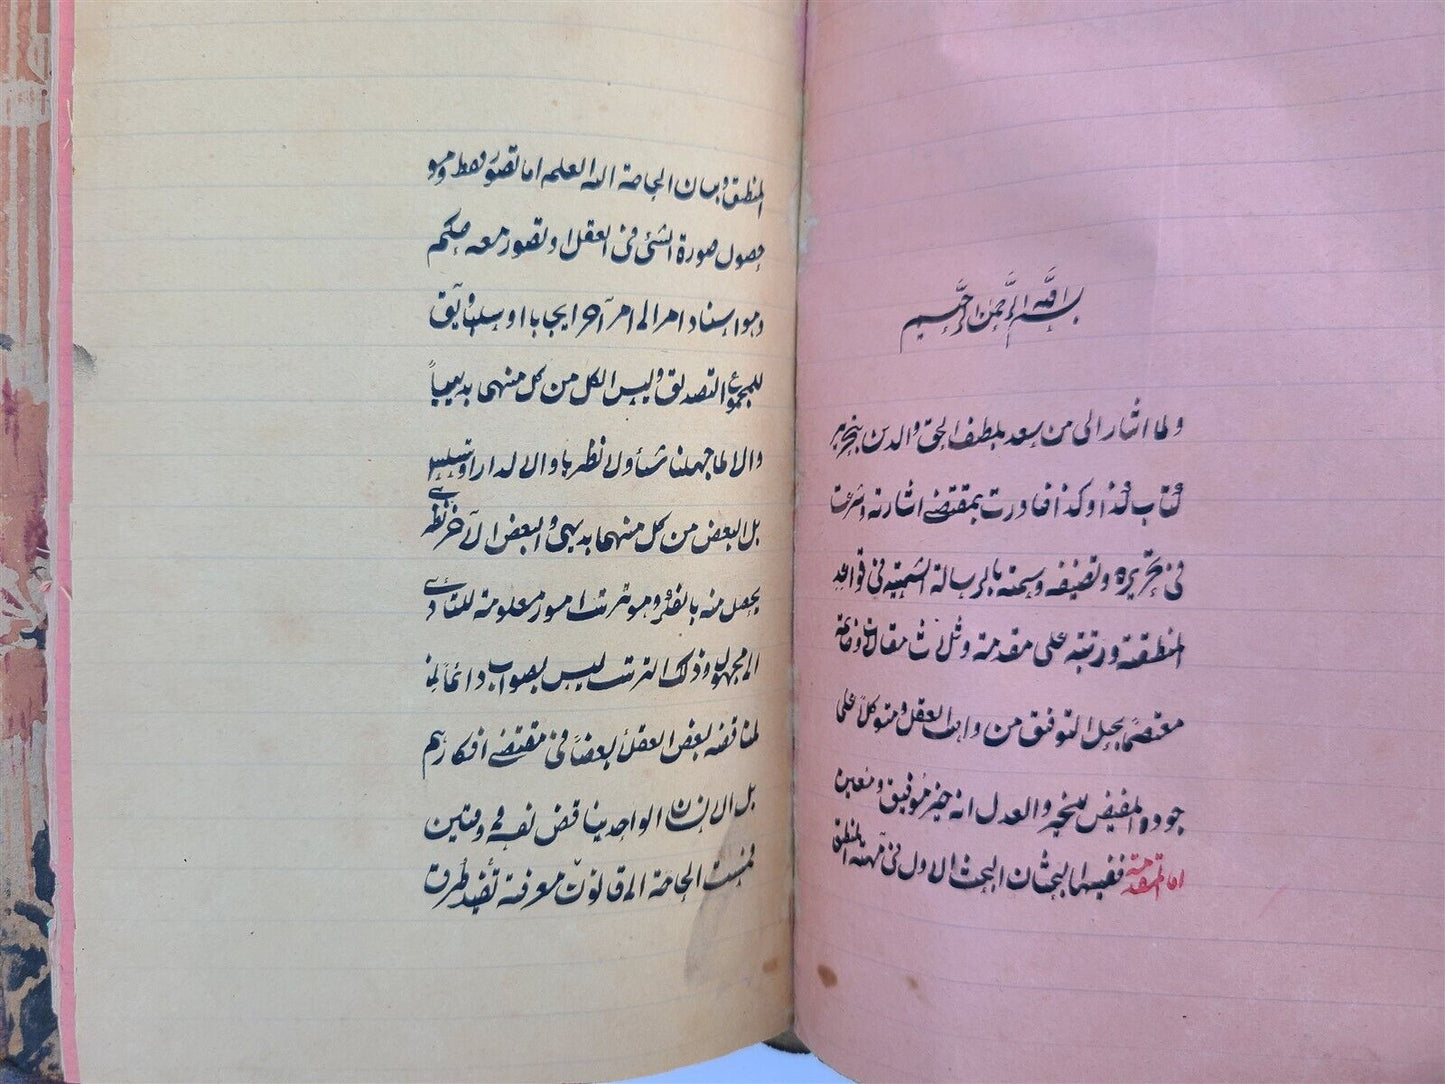 بسم الله الرحمن الرحيم
ولما اشار الى من سعد بلطف الحق والدين بتحرير
كتاب كذا وكذا فبادرت بمقتضى اشارته وشرعت
فى تحريره وتصنيفه وسمته بالرسالة الشمسية فى قواعد
المنطقية ورتبته على مقدمة وثلاث مقالات وخاتمة
معتصما بحبل التوفيق من واهب العقل ومتوكلا على
جوده المفيض للخير والعدل انه خير موفق ومعين
اما المقدمة ففيها البحثان البحث الاول فى مهية المنطق
المنطق وبيان الحاجة اليه العلم اما تصور فقط وهو
حصول صورة الشئ فى العقل او تصور معه حكم
وهو اسناد امر الى امر آخر ايجابا او سلبا ويق
للمجموع التصديق وليس الكل من كل منهما بديهيا
والا لما جهلنا شئا ولا نظريا والا لدار او تسلسل
بل البعض من كل منهما بديهى والبعض الآخر نظرى
يحصل منه بالفكر وهو ترتيب امور معلومة للتأدى
الى مجهول وذلك الترتيب ليس بصواب دائما لما
لمناقضة بعض العقلا بعضا فى مقتضى افكارهم
بل الانسان الواحد يناقض نفسه فى وقتين
فمست الحاجة الى قانون معرفة تفيد طرق